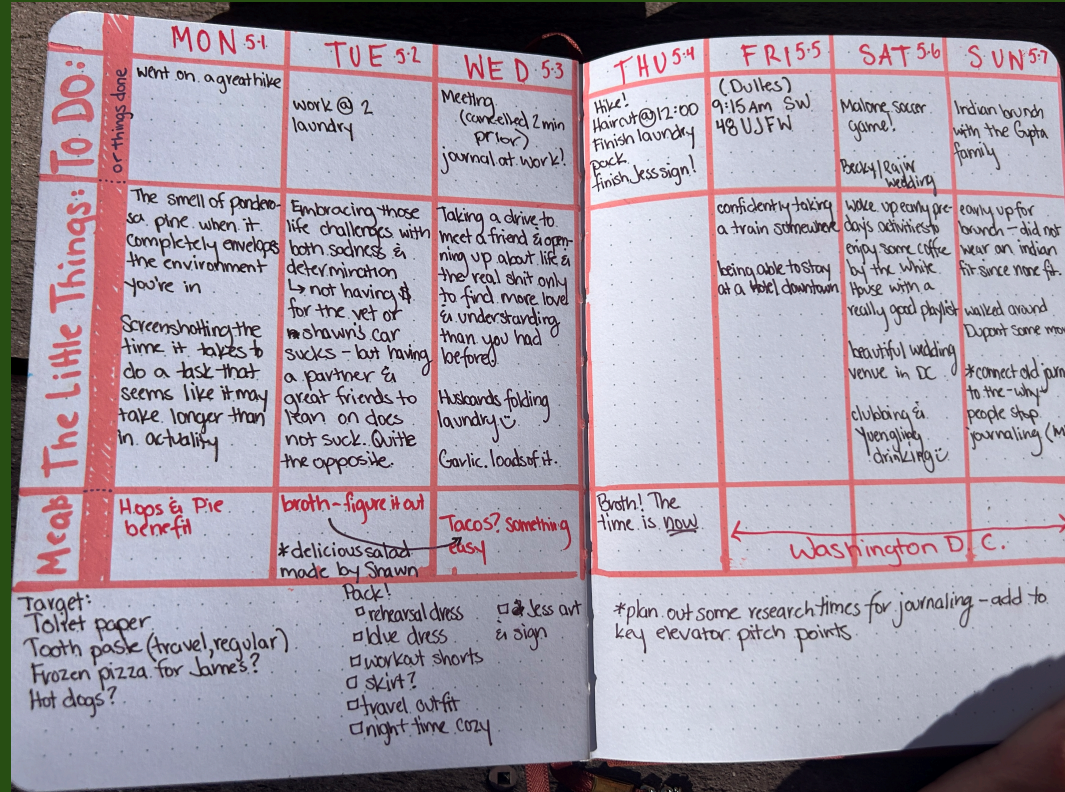 MON 5.1
TUE 5.2
WED 5.3
THU 5.4
FRI 5.5
SAT 5.6
SUN 5.7
To DO:
or things done
went on a great hike
work @ 2
laundry
Meeting
(cancelled 2 min
prior)
journal at work!
Hike!
Haircut @ 12:00
Finish laundry
pack
finish Jess sign!
(Dulles)
9:15 Am SW
48UJFW
Malone soccer
game!
Becky/Rajiv
wedding
Indian brunch
with the Gupta
family
The Little Things:
The smell of pondero-
sa pine when it
completely envelops
the environment
you're in
Screenshotting the
time it takes to
do a task that
seems like it may
take longer than
in actuality
Embracing those
life challenges with
both sadness &
determination
↳ not having $
for the vet or
shawn's car
sucks - but having
a partner &
great friends to
lean on does
not suck. Quite
the opposite.
Taking a drive to
meet a friend & open-
ning up about life &
the real shit only
to find more love
& understanding
than you had
before
Husbands folding
laundry
Garlic. loads of it.
confidently taking
a train somewhere
being able to stay
at a Hotel downtown
wake up early pre-
days activities to
enjoy some coffee
by the white
House with a
really good playlist
beautiful wedding
venue in DC
clubbing &
Yuengling
drinking
early up for
brunch - did not
wear an indian
fit since none fit.
walked around
Dupont some mo
*connect old jour
to the - why
people stop
journaling (M
Meals
Hops & Pie
benefit
broth - figure it out
*delicious salad
made by Shawn
Tacos? something
easy
Broth! The
time is now
Washington D.C.
Target:
Toilet paper
Tooth paste (travel, regular)
Frozen pizza for James?
Hot dogs?
Pack!
□ rehearsal dress
□ blue dress
□ workout shorts
□ skirt?
□ travel outfit
□ night time cozy
□ Jess art
& sign
*plan out some research times for journaling - add to
key elevator pitch points